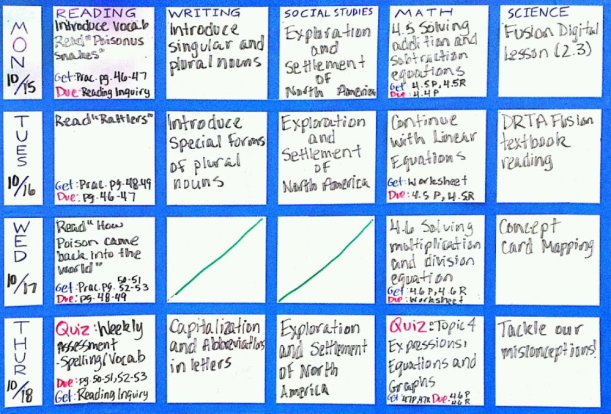 READING
WRITING
SOCIAL STUDIES
MATH
SCIENCE
MON
10/15
Introduce Vocab
Read "Poisonus
snakes"
Get: Prac. pg. 46-47
Due: Reading Inquiry
Introduce
singular and
plural nouns
Exploration
and
Settlement
of
North America
4.5 Solving
addition and
subtraction
equations
Get: 4.5P, 4.5R
Due: 4.4P
Fusion Digital
Lesson (2.3)
TUES
10/16
Read "Rattlers"
Get: Prac. pg. 48-49
Due: pg. 46-47
Introduce
Special Forms
of plural
nouns
Exploration
and
Settlement
of
North America
Continue
with Linear
Equations
Get: Worksheet
Due: 4.5P, 4.5R
DRTA Fusion
textbook
reading
WED
10/17
Read "How
Poison came
back into the
world"
Get: Prac. pg. 50-51, 52-53
Due: pg. 48-49
4.6 Solving
multiplication
and division
equation
Get: 4.6P, 4.6R
Due: Worksheet
Concept
Card Mapping
THUR
10/18
Quiz: Weekly
Assessment
-Spelling/Vocab
Due: pg. 50-51, 52-53
Get: Reading Inquiry
Capitalization
and Abbreviations
in letters
Exploration
and Settlement
of North
America
Quiz: Topic 4
Expressions,
Equations and
Graphs
Get: 4.7P, 4.7R Due: 4.6P
4.6R
Tackle our
misconceptions!